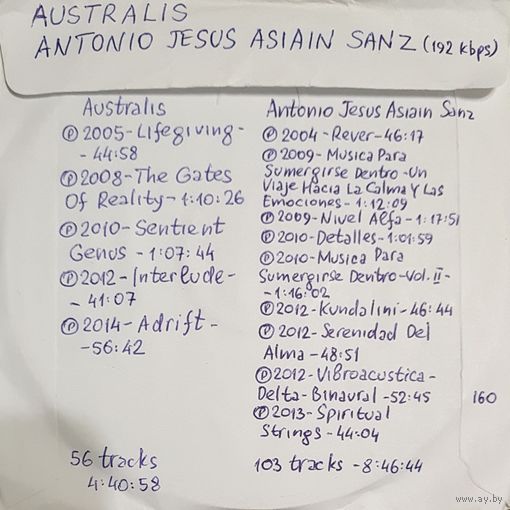 AUSTRALIS
ANTONIO JESUS ASIAIN SANZ (192 kbps)
Australis
Ⓟ 2005-Lifegiving-
- 44:58
Ⓟ 2008-The Gates
Of Reality-1:10:26
Ⓟ 2010-Sentient
Genus - 1:07:44
Ⓟ 2012-Interlude-
- 41:07
Ⓟ 2014-Adrift-
-56:42
56 tracks
4:40:58
Antonio Jesus Asiain Sanz
Ⓟ 2004-Rever-46:17
Ⓟ 2009-Musica Para
Sumergirse Dentro-Un
Viaje Hacia La Calma Y Las
Emociones-1:12:09
Ⓟ 2009-Nivel Alfa-1:17:51
Ⓟ 2010-Detalles-1:01:59
Ⓟ 2010-Musica Para
Sumergirse Dentro-Vol. II-
-1:16:02
Ⓟ 2012-Kundalini-46:44
Ⓟ 2012-Serenidad Del
Alma-48:51
Ⓟ 2012-Vibroacustica-
Delta-Binaural-52:45
Ⓟ 2013-Spiritual
Strings-44:04
103 tracks - 8:46:44
160
www.ay.by